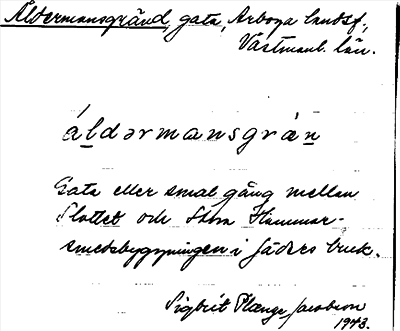 Åldermansgränd, gata, Arboga landsf.,
Västmanl. län.
áldərmansgrän
Gata eller smal gång mellan
Slottet och Stora Hammar-
smedsbyggningen i Jäders bruk.
Sigbrit Plænge Jacobson
1943.